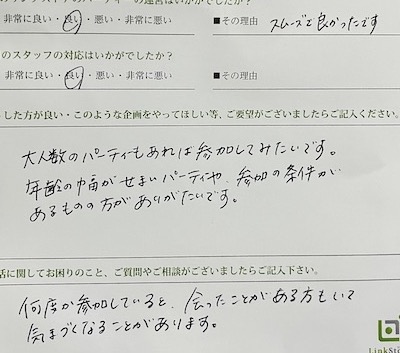 の運営はいかがでしたか？
・非常に良い・良い・悪い・非常に悪い ■その理由 スムーズで良かったです
のスタッフの対応はいかがでしたか？
・非常に良い・良い・悪い・非常に悪い ■その理由
した方が良い・このような企画をやってほしい等、ご要望がございましたらご記入ください。
大人数のパーティもあれば参加してみたいです。
年齢の幅がせまいパーティや、参加の条件が
あるものの方がありがたいです。
活に関してお困りのこと、ご質問やご相談がございましたらご記入下さい。
何度か参加していると、会ったことがある方もいて
気まづくなることがあります。
LinkSto